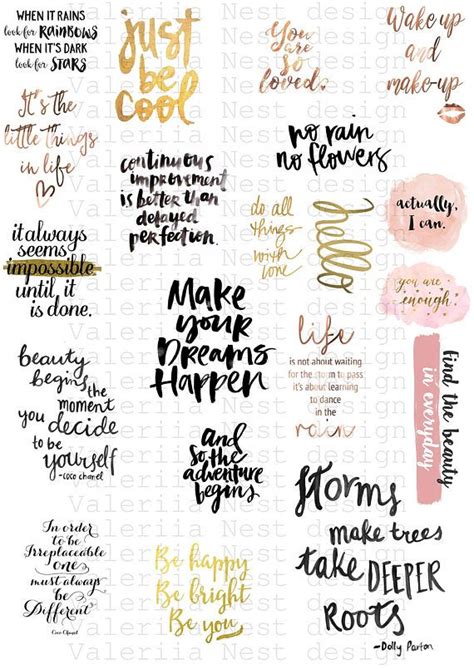 Valeriia Nest design
WHEN IT RAINS
look for RAINBOWS
WHEN IT'S DARK
look for STARS
just
be
cool
You
are
so
loved.
Wake up
and
make-up
It's the
little things
in life
no rain
no flowers
continuous
improvement
is better than
delayed
perfection.
do all
things
with
love
hello
actually,
I can.
it always
seems
impossible
until it
is done.
you are
enough.
Make
your
Dreams
Happen
life
is not about waiting
for the storm to pass
it's about learning
to dance
in the
rain
find the beauty
in everyday
beauty
begins
the
moment
you decide
to be
yourself
-COCO CHANEL
and
so the
adventure
begins
Storms
make trees
take DEEPER
ROOTS
-Dolly Parton
In order
to be
Irreplaceable
one
must always
be
Different
Coco Chanel
Be happy
Be bright
Be you